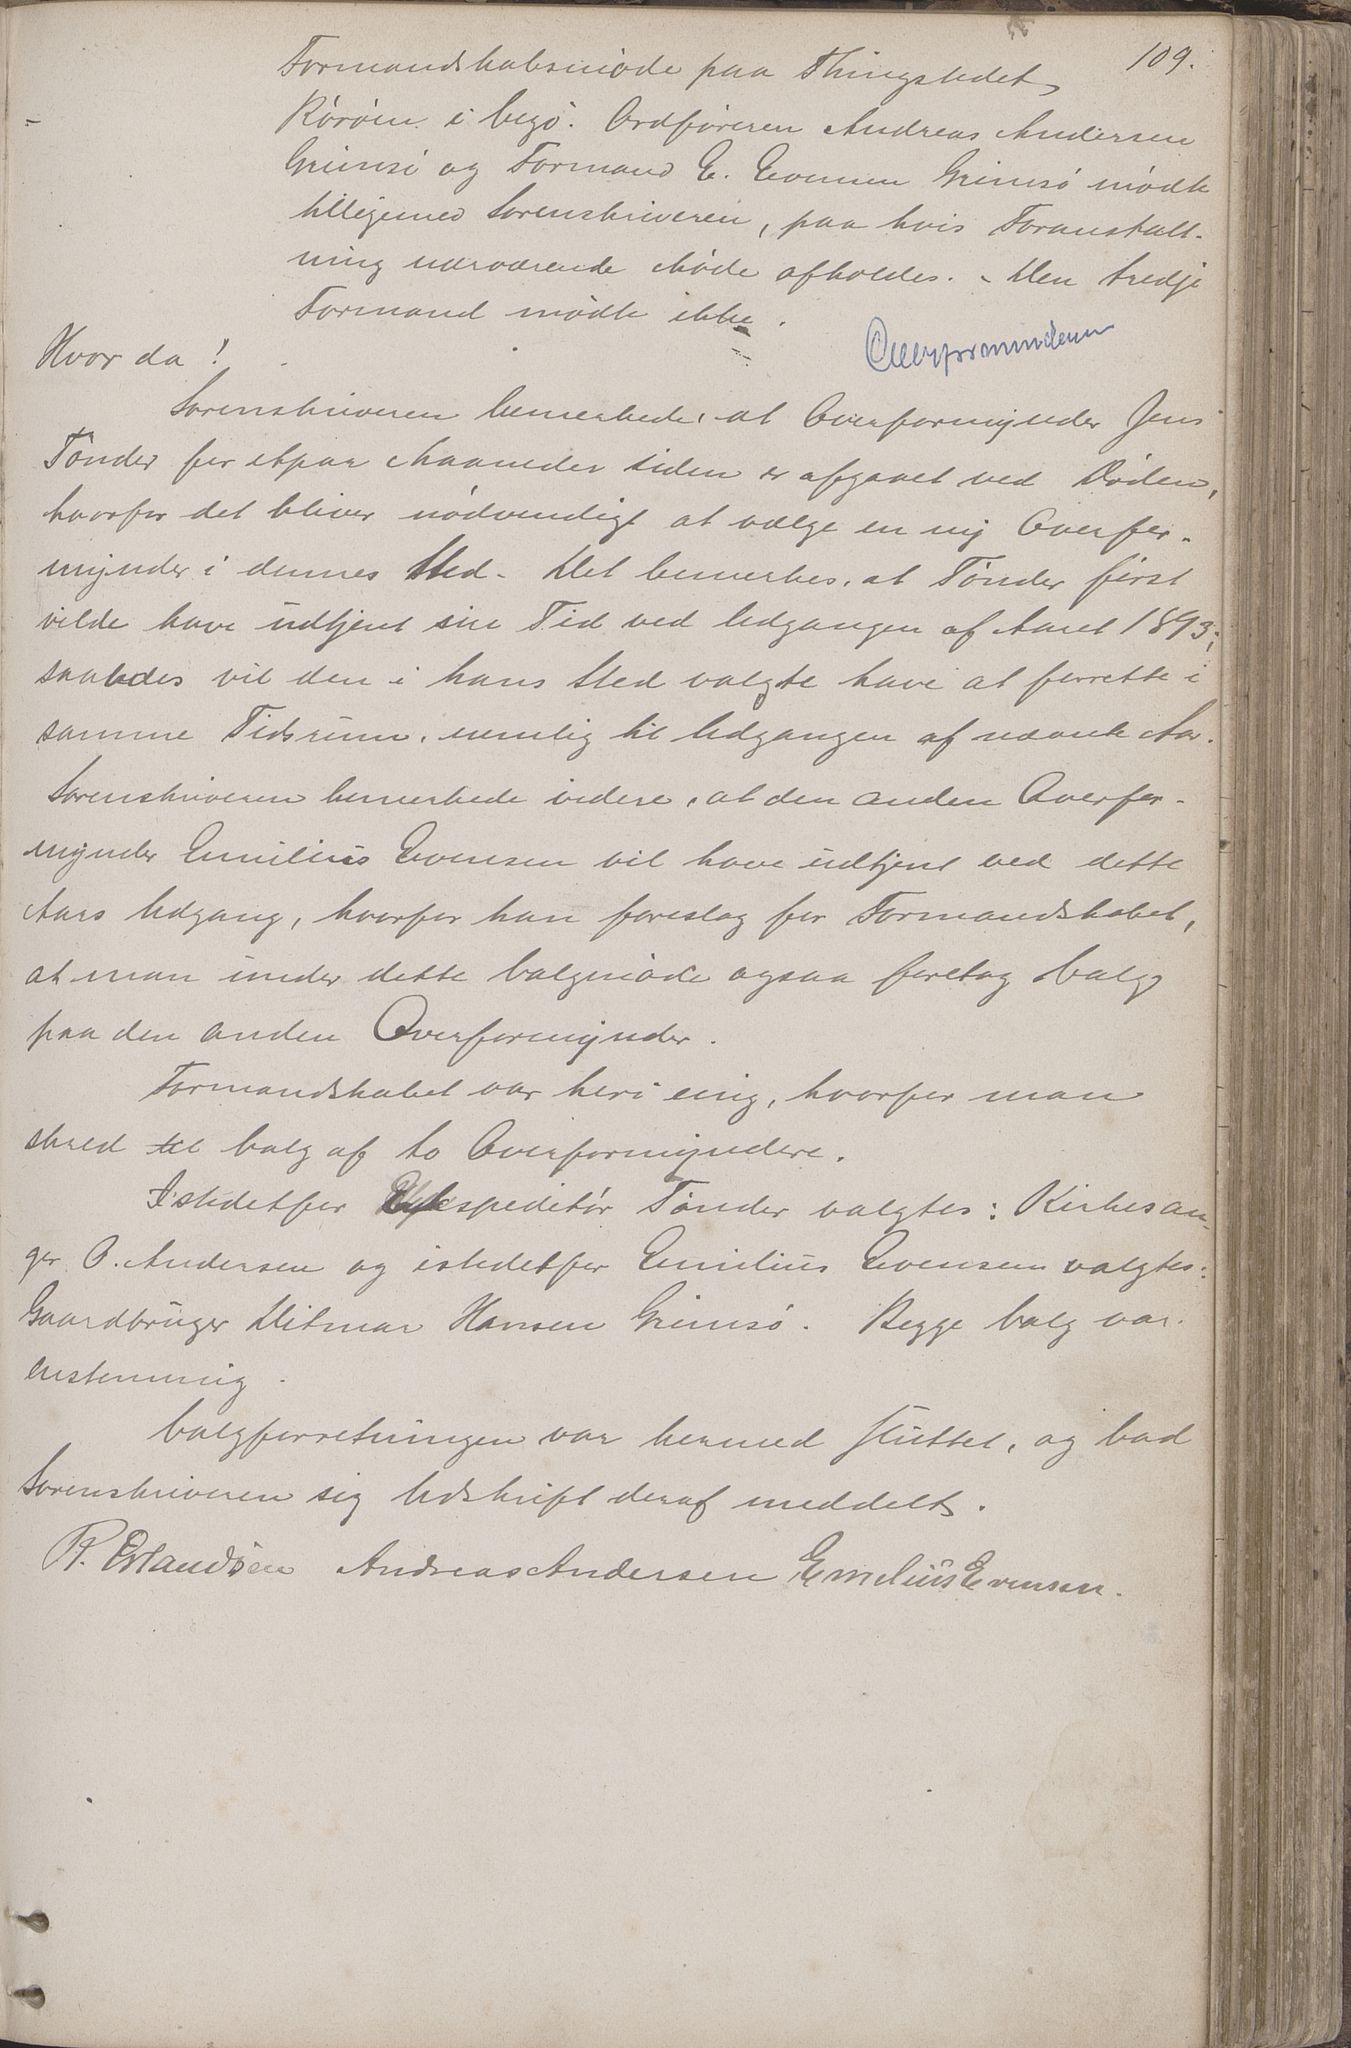 109.
Formandskabsmöde paa Thingstedet
Röröen i Vegö. Ordföreren Andreas Andersen
Grimsö og Formand E. Evensen Grimsö mödte
tilligemed Sorenskriveren, paa hvis Foranstalt-
ning nærværende Möde afholdes. - Den tredje
Formand mödte ikke.
Overformyndere
Hvor da!
Sorenskriveren bemerkede, at Overformynder Jens
Tönder for etpar Maaneder siden er afgaaet ved Döden,
hvorfor det bliver nödvendigt at vælge en ny Overfor-
mynder i dennes Sted. Det bemerkes, at Tönder först
vilde have udtjent sin Tid ved Udgangen af Aaret 1893;
saaledes vil den i hans Sted valgte have at forrette i
samme Tidsrum, nemlig til Udgangen af nævnte Aar.
Sorenskriveren bemerkede videre, at den anden Overfor-
mynder Emilius Evensen vil have udtjent ved dette
Aars Udgang, hvorfor han foreslog for Formandskabet,
at man under dette Valgmöde ogsaa foretog Valg
paa den anden Overformynder.
Formandskabet var heri enig, hvorfor man
skred til Valg af to Overformyndere.
Istedetfor Ekspeditör Tönder valgtes: Kirkesan-
ger P. Andersen og istedetfor Emilius Evensen valgtes:
Gaardbruger Ditmar Hansen Grimsö. Begge Valg var
enstemmig.
Valgforretningen var hermed sluttet, og bad
Sorenskriveren sig Udskrift deraf meddelt.
R. Erlandsen Andreas Andersen Emelius Evensen.